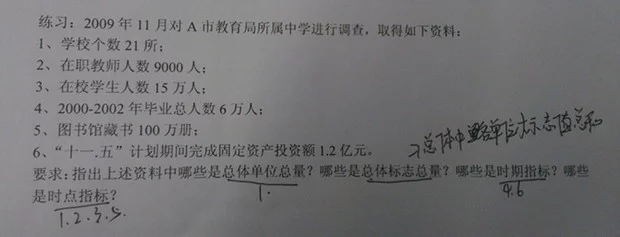 练习：2009 年 11 月对 A 市教育局所属中学进行调查，取得如下资料：
1、学校个数 21 所；
2、在职教师人数 9000 人；
3、在校学生人数 15 万人；
4、2000-2002 年毕业总人数 6 万人；
5、图书馆藏书 100 万册；
总体中各单位标志值总和
6、“十一.五”计划期间完成固定资产投资额 1.2 亿元。
要求：指出上述资料中哪些是总体单位总量？哪些是总体标志总量？哪些是时期指标？哪些
1. 4.6
是时点指标？
1.2.3.5.